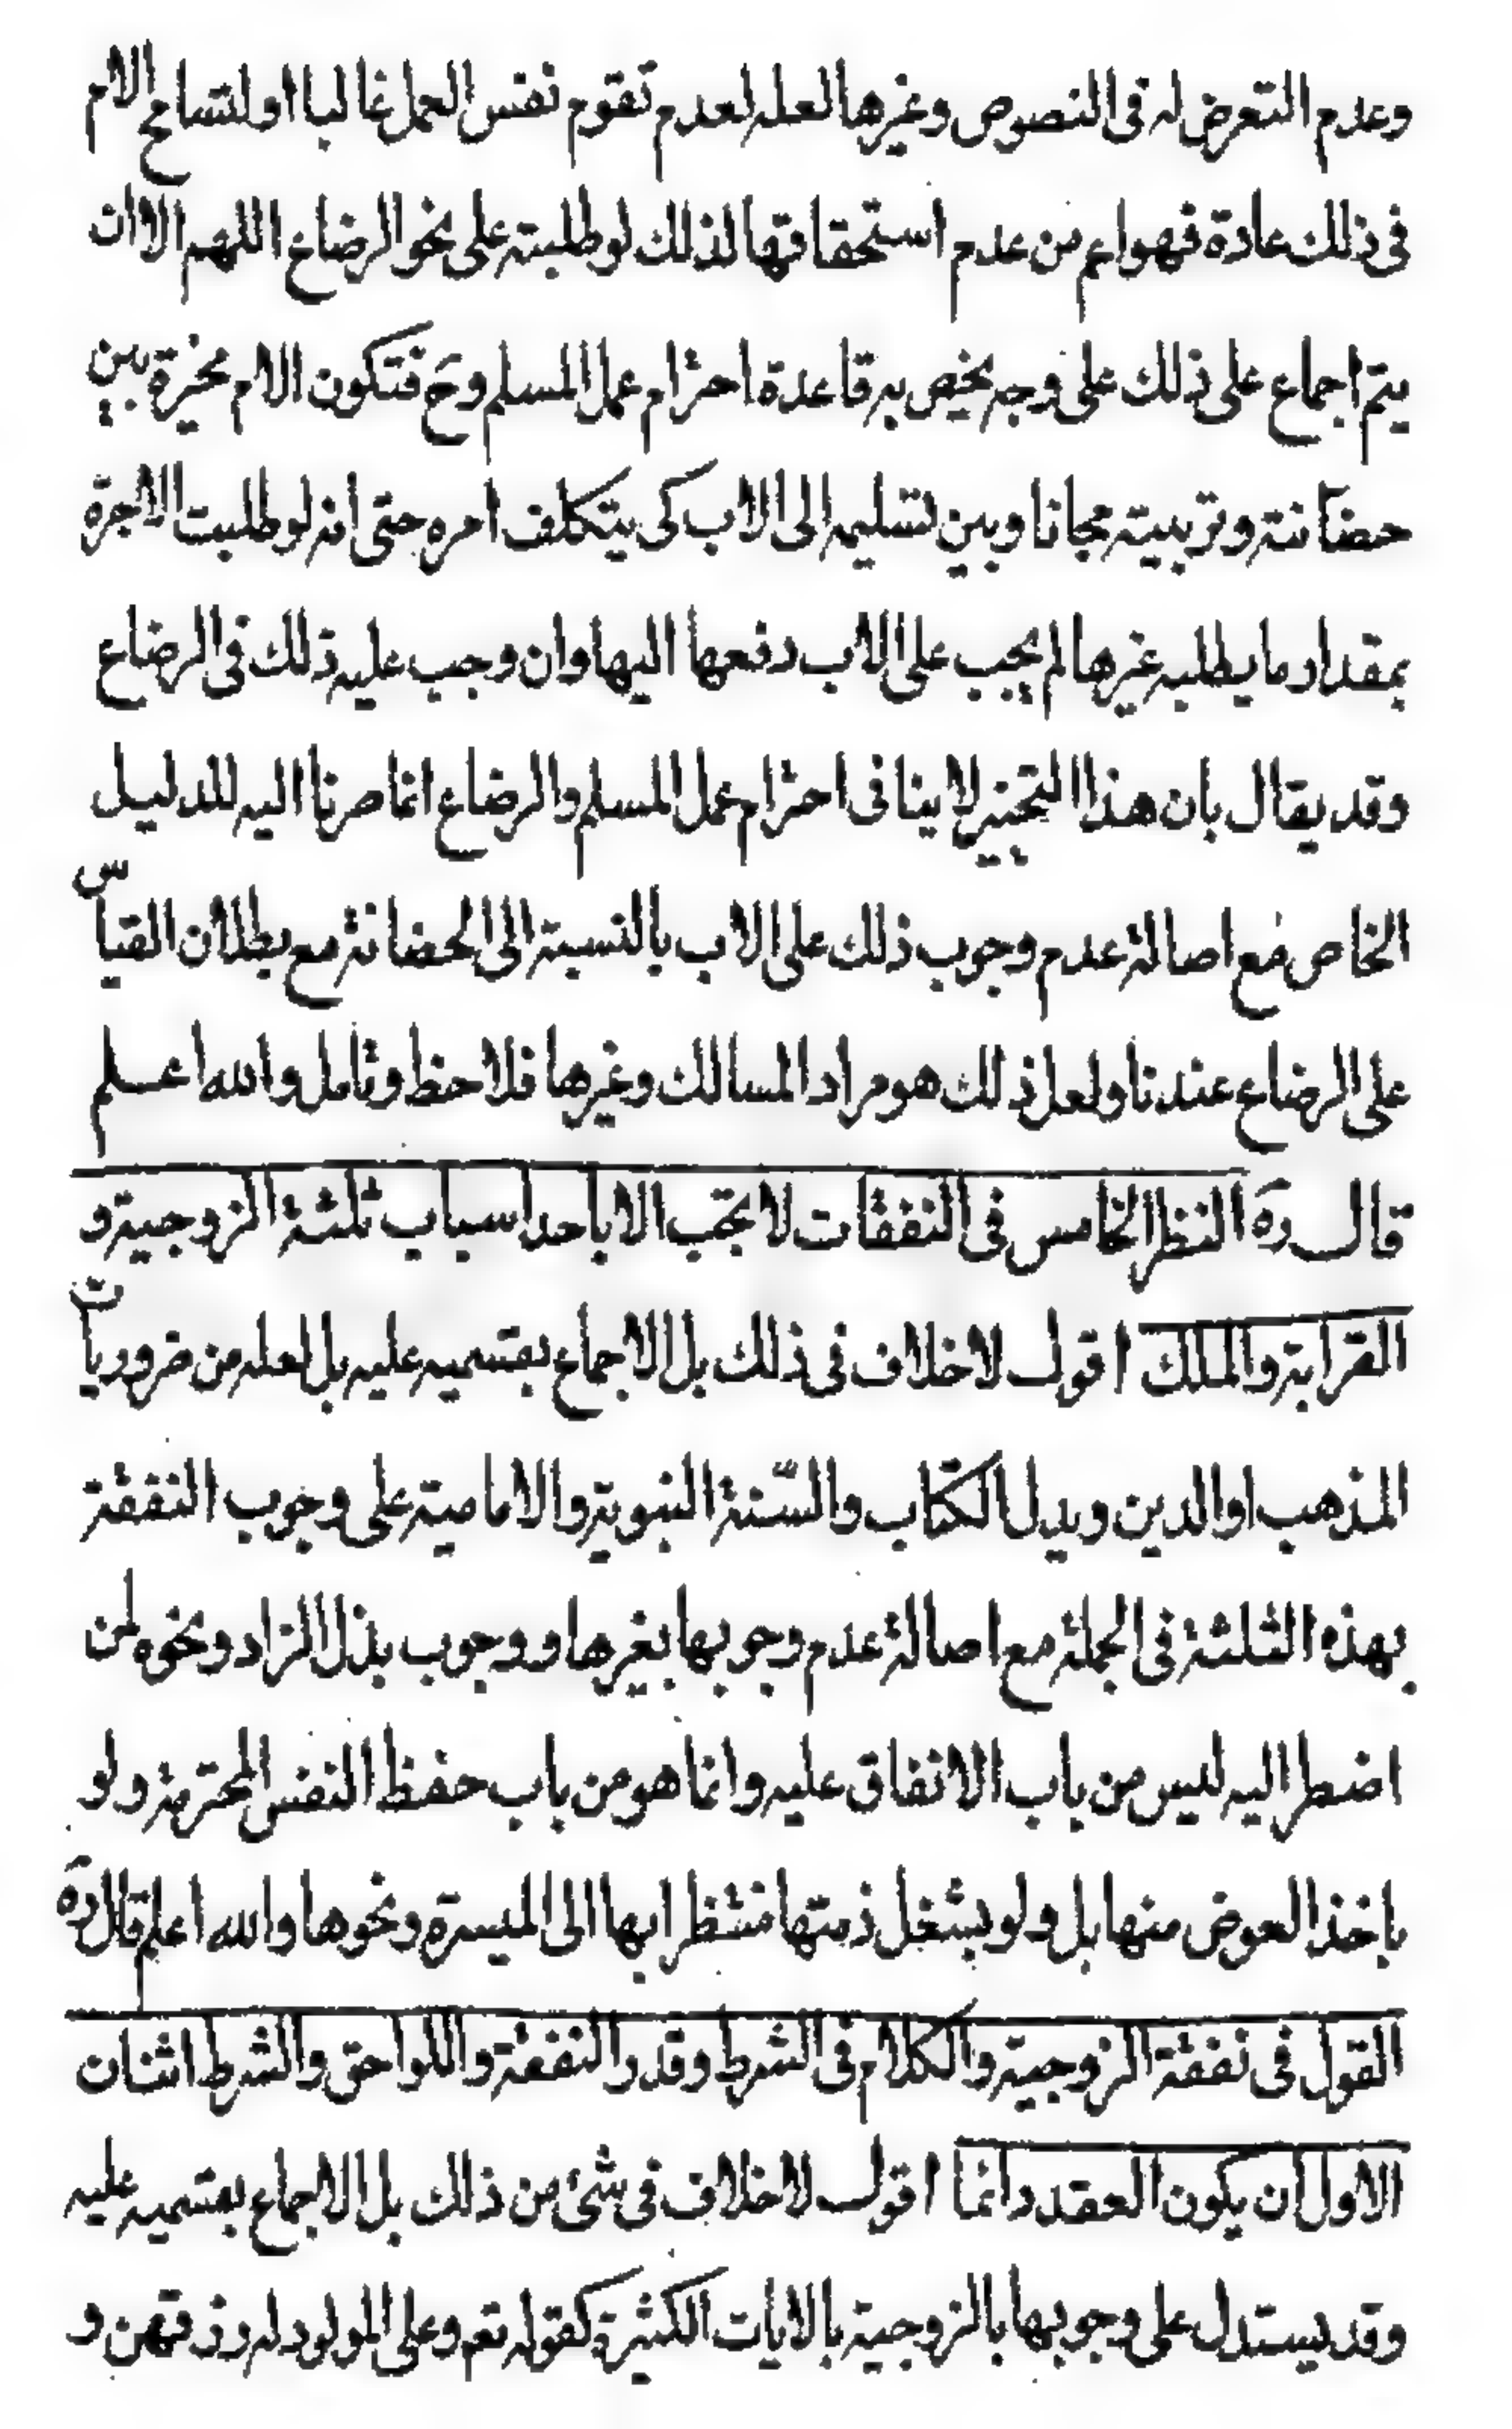 وعدم التعرض له فى النصوص وغيرها لعله لعدم تقوم نفس العمل غالبا او لتسامح الام
فى ذلك عادة فهو اعم من عدم استحقاقها لذلك لو طلبته على نحو الرضاع اللهم الا ان
يتم اجماع على ذلك على وجه يخص به قاعدة احترام عمل المسلم وح فتكون الام مخيرة بين
حضانته وتربيته مجانا وبين تسليمه الى الاب كى يتكلف امره حتى انه لو طلبت الاجرة
بمقدار ما يطلبه غيرها لم يجب على الاب دفعها اليها وان وجب عليه ذلك فى الرضاع
وقد يقال بان هذا التخيير لا ينافى احترام عمل المسلم والرضاع انما صرنا اليه للدليل
الخاص فمع اصالة عدم وجوب ذلك على الاب بالنسبة الى الحضانة مع بطلان القياس
على الرضاع عندنا ولعل ذلك هو مراد المسالك وغيرها فلاحظ وتامل والله اعلم
قال ره النظر الخامس فى النفقات لا تجب الا باحد اسباب ثلثة الزوجية و
القرابة والملك اقول لا خلاف فى ذلك بل الاجماع بقسميه عليه بل لعله من ضروريات
المذهب او الدين ويدل الكتاب والسّنة النبوية والامامية على وجوب النفقة
بهذه الثلثة فى الجملة مع اصالة عدم وجوبها بغيرها ووجوب بذل الزاد ونحوه لمن
اضطر اليه ليس من باب الانفاق عليه وانما هو من باب حفظ النفس المحترمة ولو
باخذ العوض منها بل ولو بشغل ذمتها منتظرا بها الى الميسرة ونحوها والله اعلم قال ره
القول فى نفقة الزوجية والكلام فى الشرط وقدر النفقة واللواحق والشرط اثنان
الاول ان يكون العقد دائما اقول لا خلاف فى شئ من ذلك بل الاجماع بقسميه عليه
وقد يستدل على وجوبها بالزوجية بالايات الكثيرة كقوله تعم وعلى المولود له رزقهن و